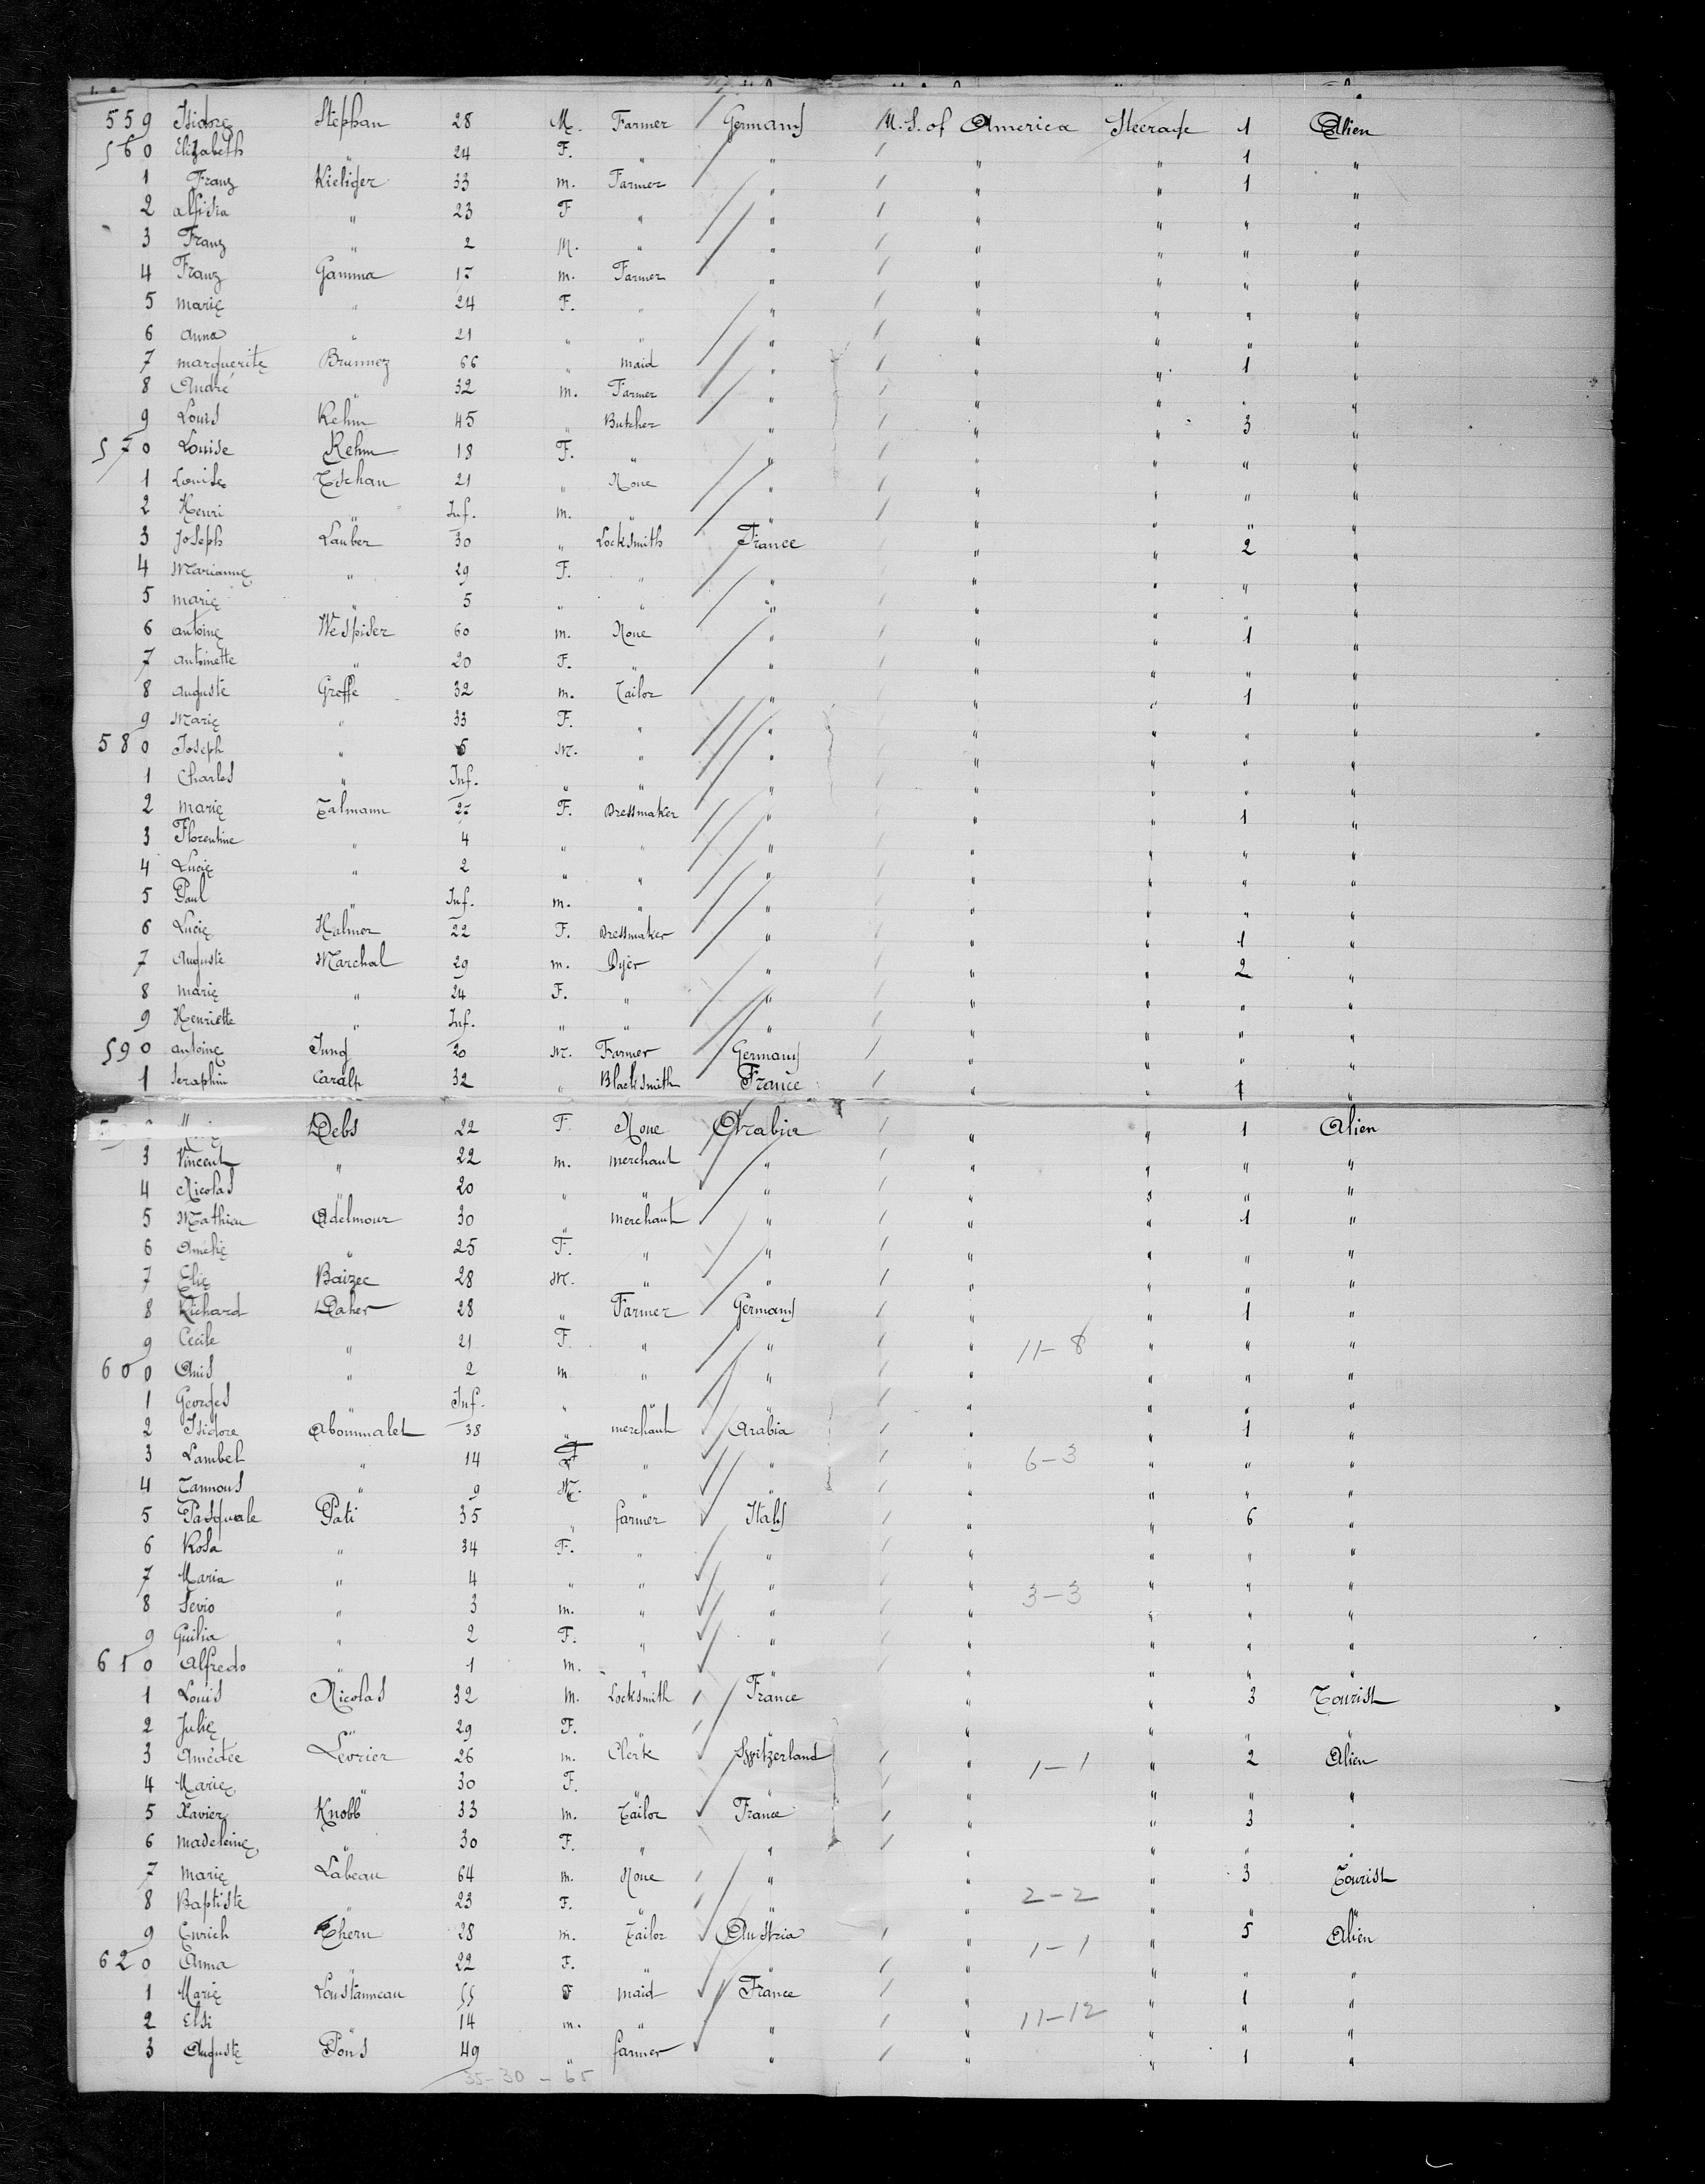 559 Isidore Stephan 28 M. Farmer Germany U.S. of America Steerage 1 Alien
560 Elizabeth " 24 F. " " " " 1 "
1 Franz Kieliger 33 m. Farmer " " " 1 "
2 " 23 F " " " " " "
3 Franz " 2 M. " " " " " "
4 Franz Gamma m. Farmer " " " " "
5 marie " 24 F. " " " " " "
6 anna " 21 " " " " " " "
7 marguerite 66 " maid " " " 1 "
8 André " 32 m. Farmer " " " " "
9 Louis Rehm 45 " Butcher " " " 3 "
570 Louise Rehm 18 F. " " " " " "
1 Louise Tschan 21 " None " " " " "
2 Henri " Inf. m. " " " " " "
3 Joseph Lauber 30 " Locksmith France " " 2 "
4 Marianne " 29 F. " " " " " "
5 marie " 5 " " " " " " "
6 antoine Wespiser 60 m. None " " " 1 "
7 antoinette " 20 F. " " " " " "
8 auguste Groffe 32 m. Tailor " " " 1 "
9 Marie " 33 F. " " " " " "
580 Joseph " 5 M. " " " " " "
1 Charles " Inf. " " " " " " "
2 marie Talmann F. Dressmaker " " " 1 "
3 Florentine " 4 " " " " " " "
4 Lucie " 2 " " " " " " "
5 Paul " Inf. m. " " " " " "
6 Lucie Halmer 22 F. Dressmaker " " " 1 "
7 Auguste Marchal 29 m. Dyer " " " 2 "
8 marie " 24 F. " " " " " "
9 Henriette " Inf. " " " " " " "
590 antoine Jung 20 M. Farmer Germany " " " "
1 Seraphin Caralp 32 " Blacksmith France " " 1 "
Debs 22 F. None Arabia " " 1 Alien
3 Vincent " 22 m. merchant " " " " "
4 Nicolas " 20 " " " " " " "
5 Mathieu Adelmour 30 " merchant " " " 1 "
6 Amélie " 25 F. " " " " " "
7 Elie Baizec 28 M. " " " " " "
8 Richard Daher 28 " Farmer Germany " " 1 "
9 Cecile " 21 F. " " " 11-8 " " "
600 Anis " 2 m " " " " " "
1 Georges " Inf. " " " " " " "
2 Isidore Aboumalet 38 " merchant Arabia " " 1 "
3 Lambel " 14 F " " " 6-3 " " "
4 Tannous " 9 M. " " " " " "
5 Pasquale Pati 35 " farmer Italy " " 6 "
6 Rosa " 34 F. " " " " " "
7 Maria " 4 " " " " 3-3 " " "
8 Sevio " 3 m. " " " " " "
9 Guilia " 2 F. " " " " " "
610 Alfredo " 1 m. " " " " " "
1 Louis Nicolas 32 M. Locksmith France " " 3 Tourist
2 Julie " 29 F. " " " " " "
3 Amédée Levrier 26 m. Clerk Switzerland " 1-1 " 2 Alien
4 Marie " 30 F. " " " " " "
5 Xavier Knobb 33 m. Tailor France " " 3 "
6 madeleine " 30 F. " " " " " "
7 marie Labeau 64 m. None " " " 3 Tourist
8 Baptiste " 23 F. " " " 2-2 " " "
9 Enrich Thern 28 m. Tailor Austria " 1-1 " 5 Alien
620 Anna " 22 F. " " " " " "
1 Marie Loustanneau 55 F maid France " " 1 "
2 Elsi " 14 m. " " " 11-12 " " "
3 Auguste Pons 49 " farmer " " " 1 "
35-30-65